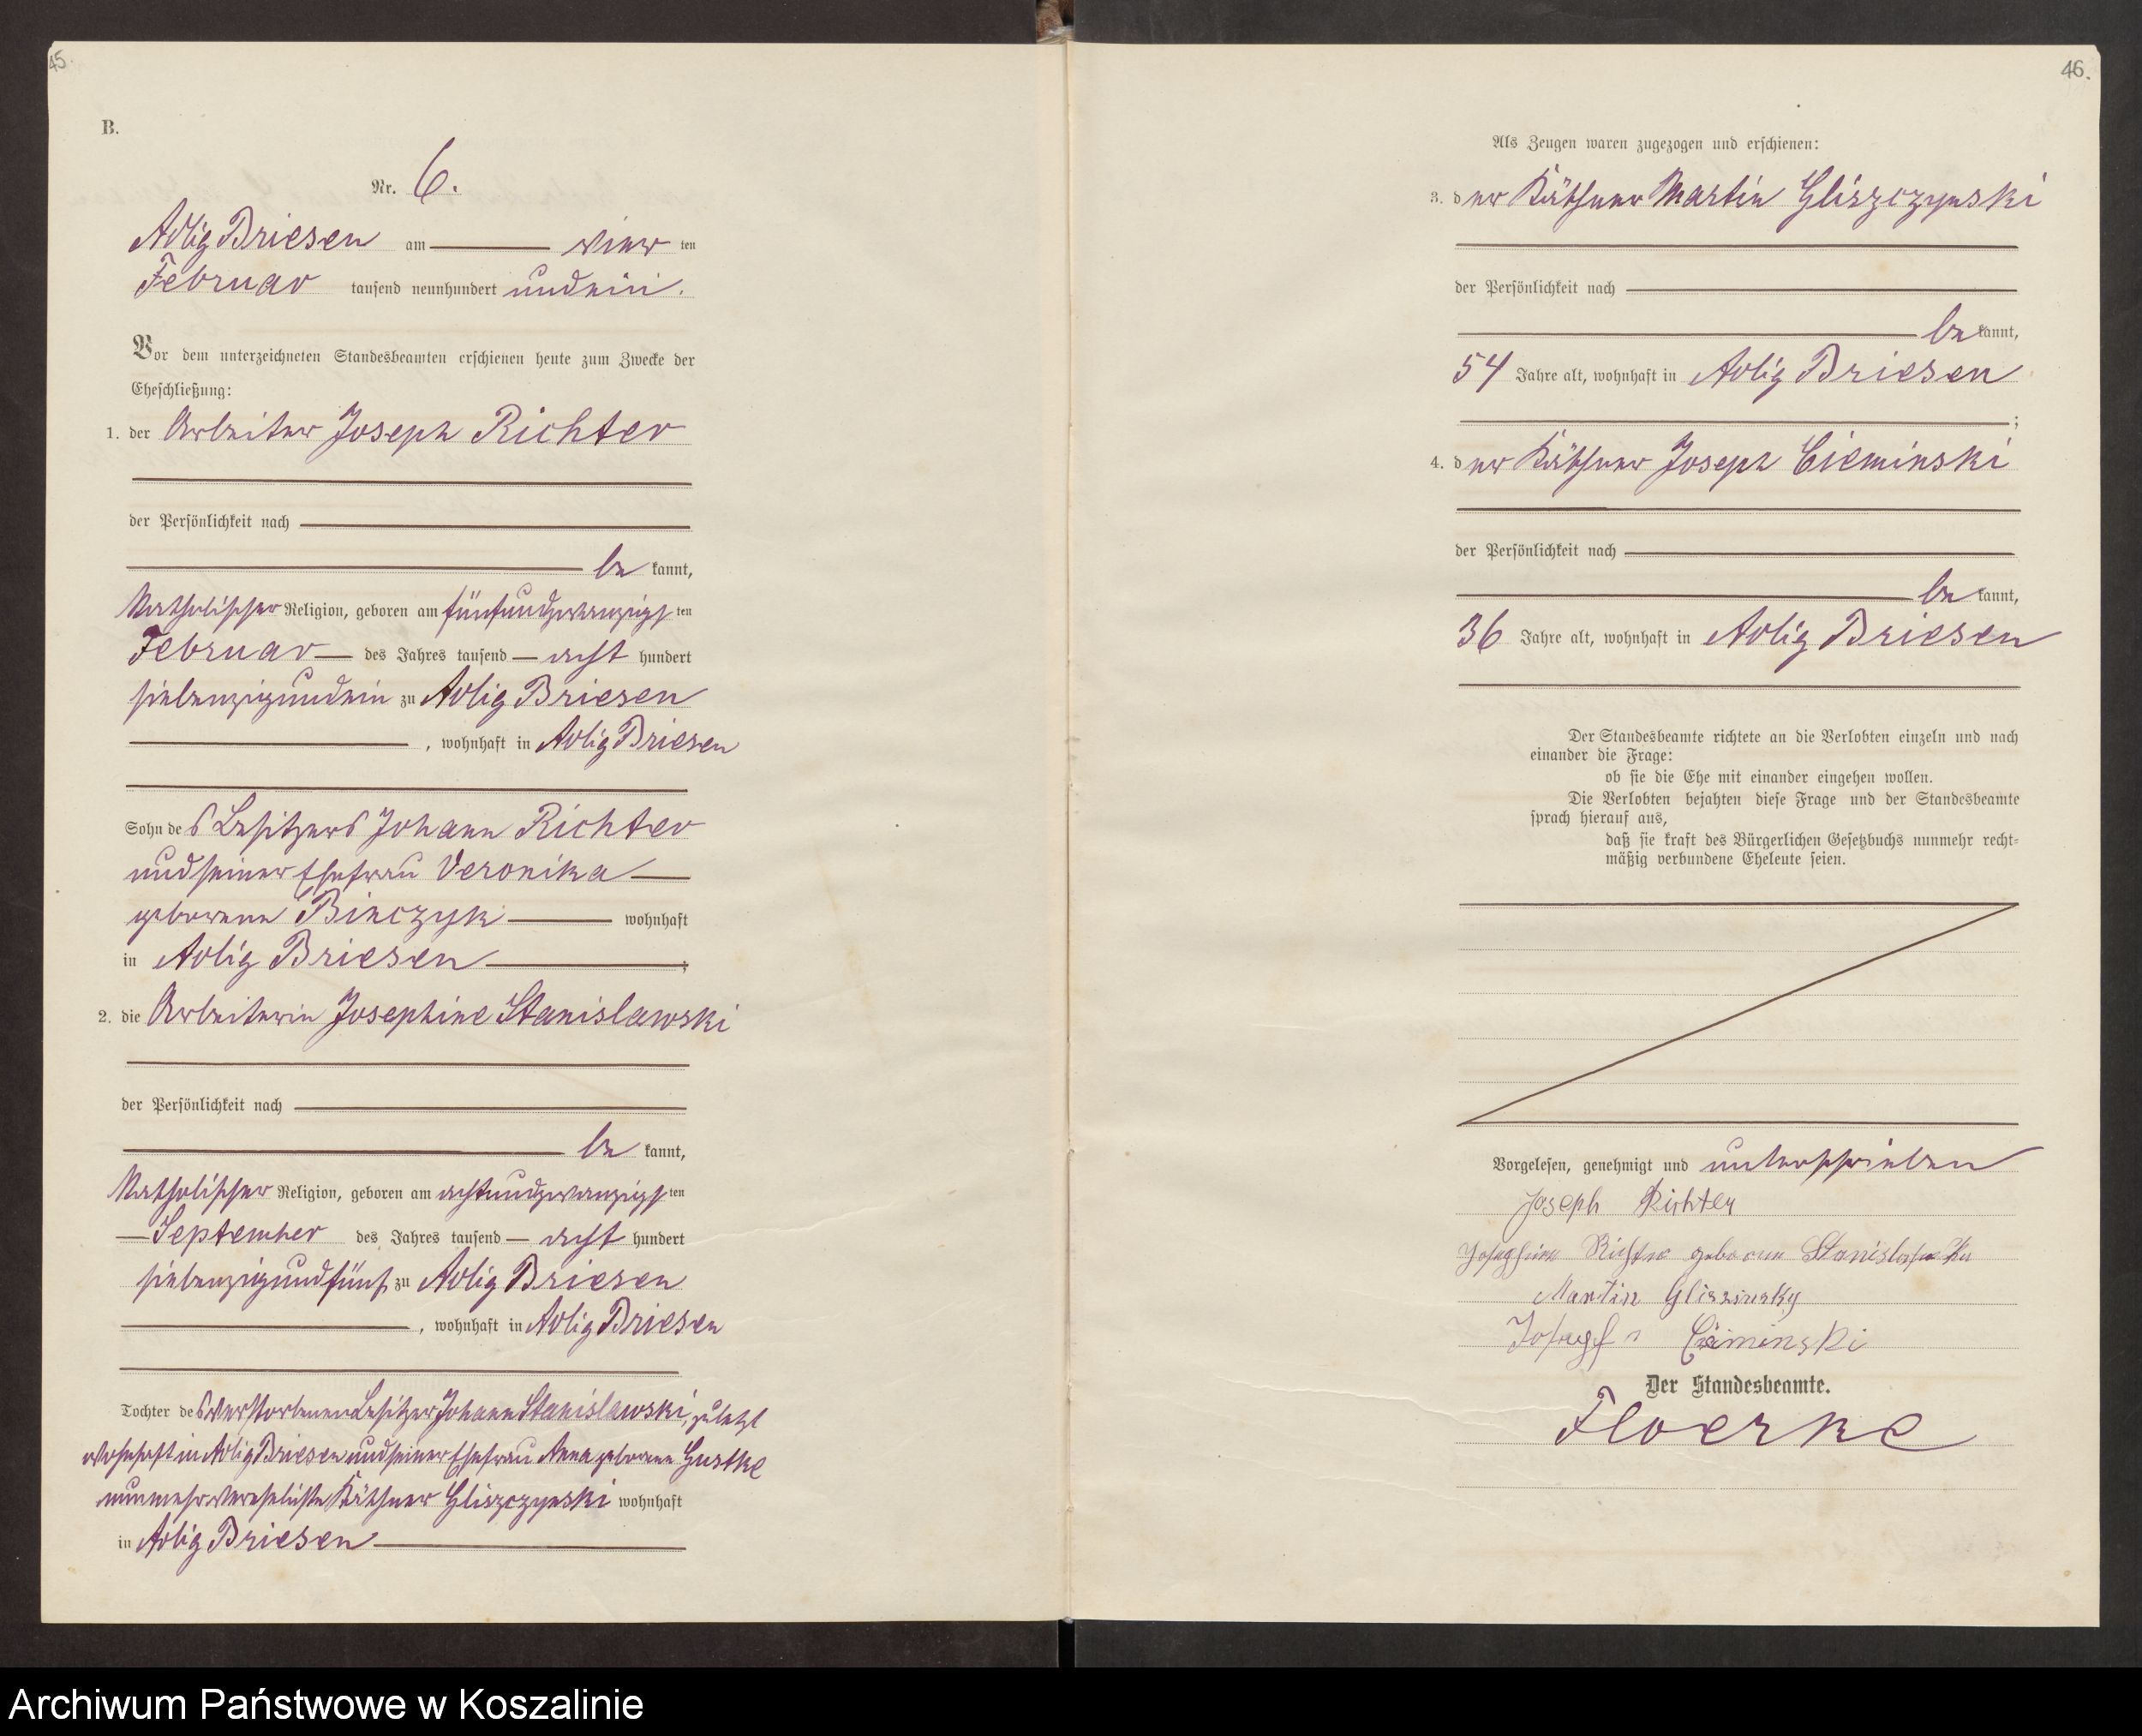 45.
B.
Nr. 6.
Adlig Briesen am vier ten
Februar tausend neunhundert und ein.
Vor dem unterzeichneten Standesbeamten erschienen heute zum Zwecke der
Eheschließung:
1. der Arbeiter Joseph Richter
der Persönlichkeit nach
be kannt,
katholischer Religion, geboren am fünfundzwanzigs ten
Februar des Jahres tausend acht hundert
siebenzigundein zu Adlig Briesen
, wohnhaft in Adlig Briesen
Sohn des Besitzers Johann Richter
und seiner Ehefrau Veronika
geborenen Binczyk wohnhaft
in Adlig Briesen ;
2. die Arbeiterin Josephine Stanislawski
der Persönlichkeit nach
be kannt,
katholischer Religion, geboren am achtundzwanzigs ten
September des Jahres tausend acht hundert
siebenzigundfünf zu Adlig Briesen
, wohnhaft in Adlig Briesen
Tochter des verstorbenen Besitzer Johann Stanislawski, zuletzt
wohnhaft in Adlig Briesen und seiner Ehefrau Anna geborenen Gustke
nunmehr verehelichte Käthner Gliszczynski wohnhaft
in Adlig Briesen
46.
Als Zeugen waren zugezogen und erschienen:
3. der Käthner Martin Gliszczynski
der Persönlichkeit nach
be kannt,
54 Jahre alt, wohnhaft in Adlig Briesen
;
4. der Käthner Joseph Cieminski
der Persönlichkeit nach
be kannt,
36 Jahre alt, wohnhaft in Adlig Briesen
Der Standesbeamte richtete an die Verlobten einzeln und nach
einander die Frage:
ob sie die Ehe mit einander eingehen wollen.
Die Verlobten bejahten diese Frage und der Standesbeamte
sprach hierauf aus,
daß sie kraft des Bürgerlichen Gesetzbuchs nunmehr recht=
mäßig verbundene Eheleute seien.
Vorgelesen, genehmigt und unterschrieben
Joseph Richter
Josephine Richter geborene
Martin Glissinsky
Joseph Cieminski
Der Standesbeamte.
Floerke
Archiwum Państwowe w Koszalinie